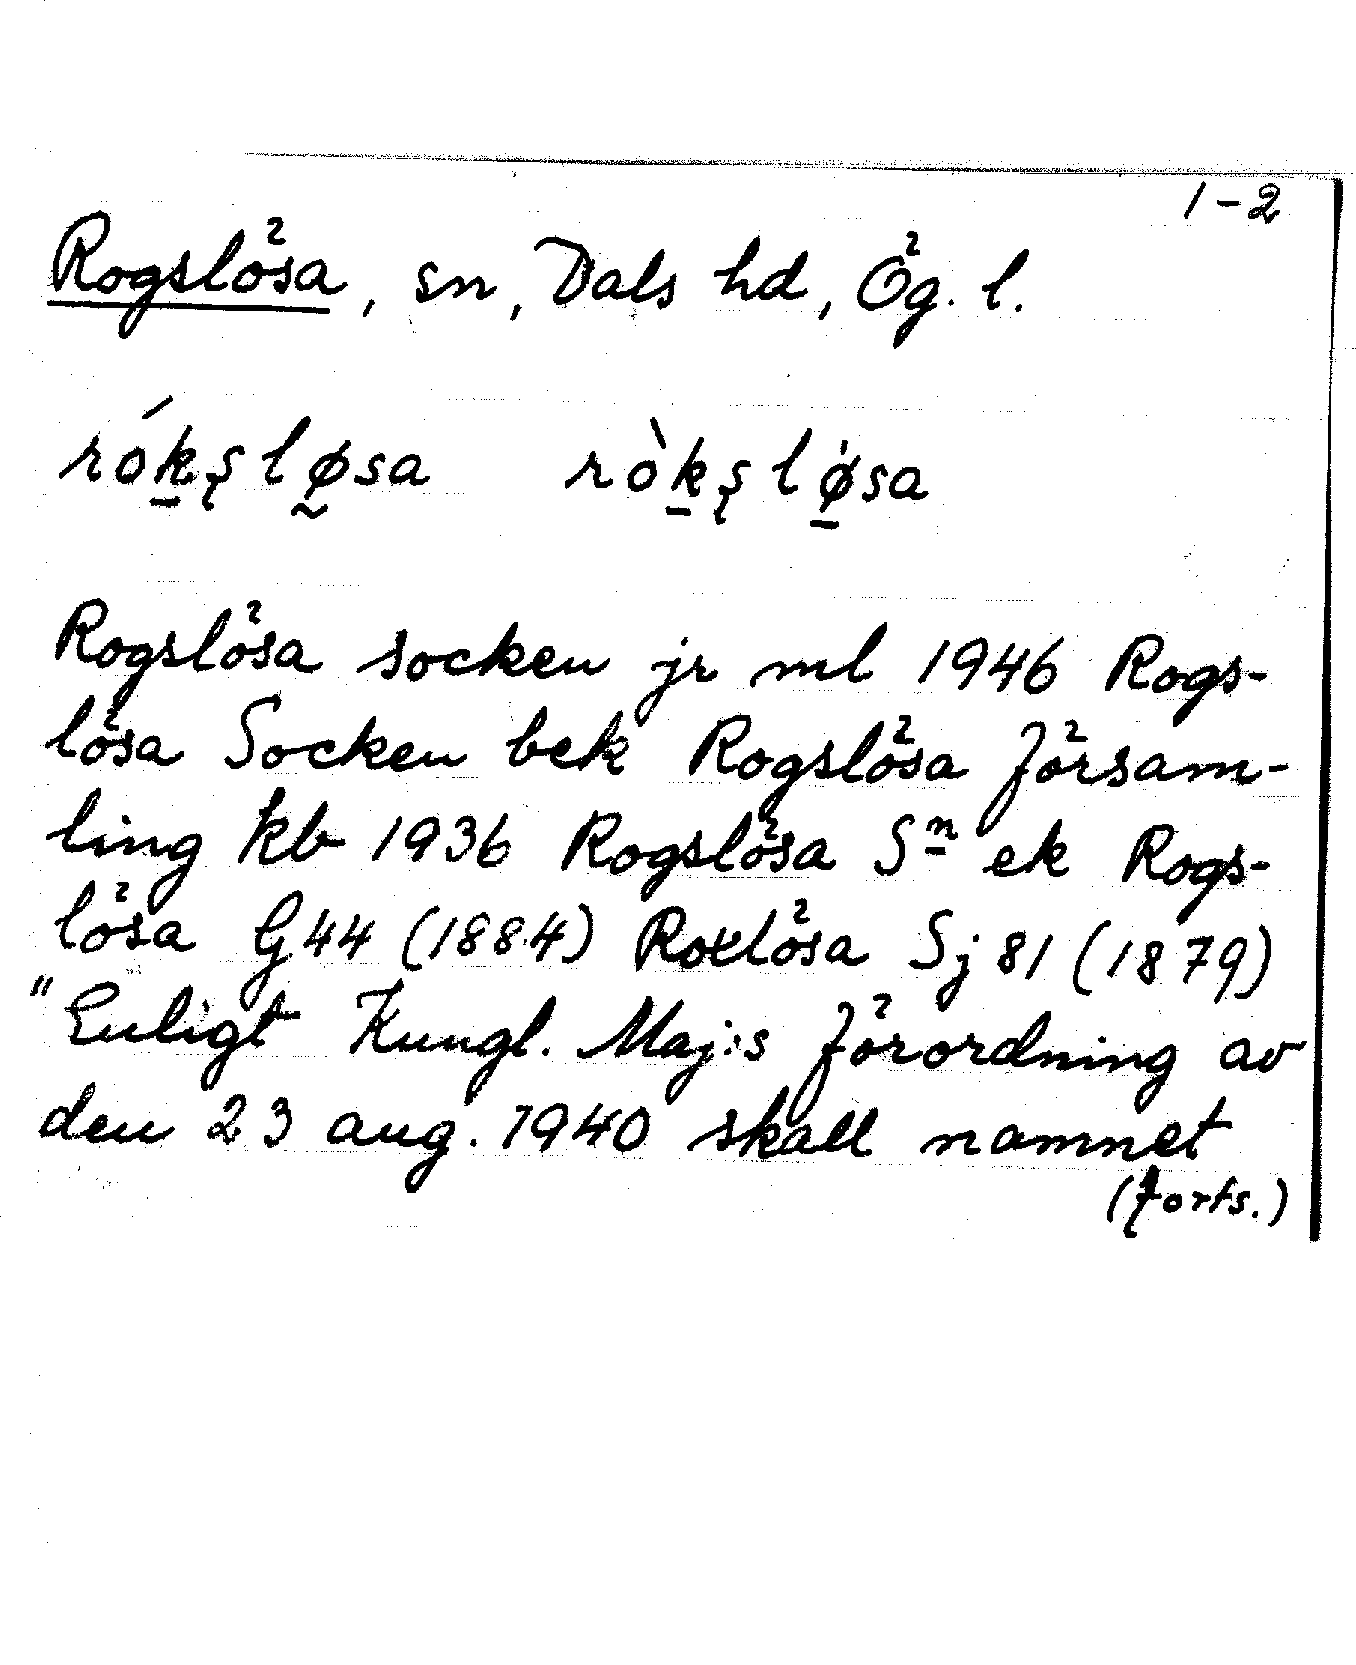 1-2
Rogslösa, sn, Dals hd, Ög. l.
rók̠s̨lø̰sa ròk̠s̨lǿ̠sa
Rogslösa socken jr ml 1946 Rogs-
lösa Socken bek Rogslösa försam-
ling kb 1936 Rogslösa Sn ek Rogs-
lösa G44 (1884) Roxlösa Sj81 (1879)
"Enligt Kungl. Maj:s förordning av
den 23 aug. 1940 skall namnet
(forts.)